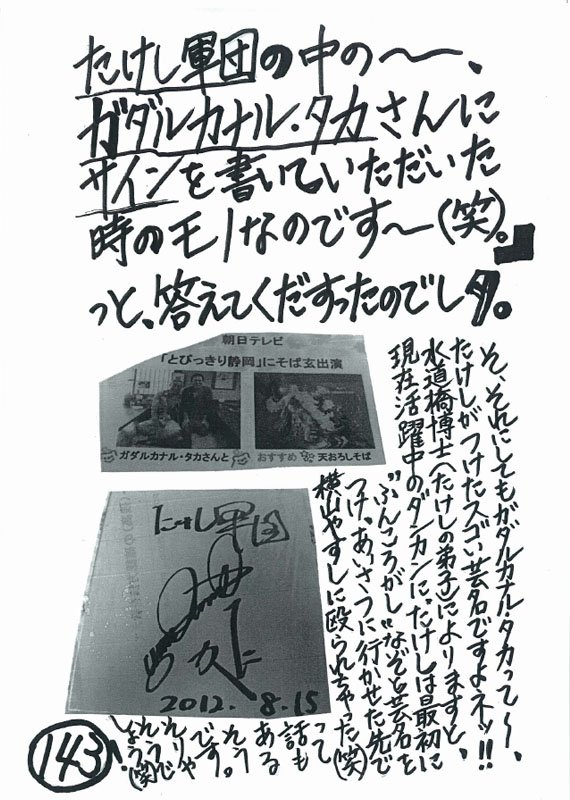 たけし軍団の中の〜、
ガダルカナル・タカさんに
サインを書いていただいた
時のモノなのです〜(笑)。
っと、答えてくだすったのでしタ。
朝日テレビ
「とびっきり静岡」にそば玄出演
ガダルカナル・タカさんと
おすすめ 天おろしそば
たけし軍団
タカ
2012.8.15
そ、それにしてもガダルカナルタカって〜、
たけしがつけたスゴい芸名ですよネッ!!
水道橋博士(たけしの弟子)によりますと、
現在活躍中のダンカンに、たけしは最初に
“ふんころがし”なぞと芸名を
つけ、あいさつに行かせた先で
横山やすしに殴られちゃった(笑)
って
話も
ある
そう
です。
そりゃ
そうで
しょう。(笑)
143